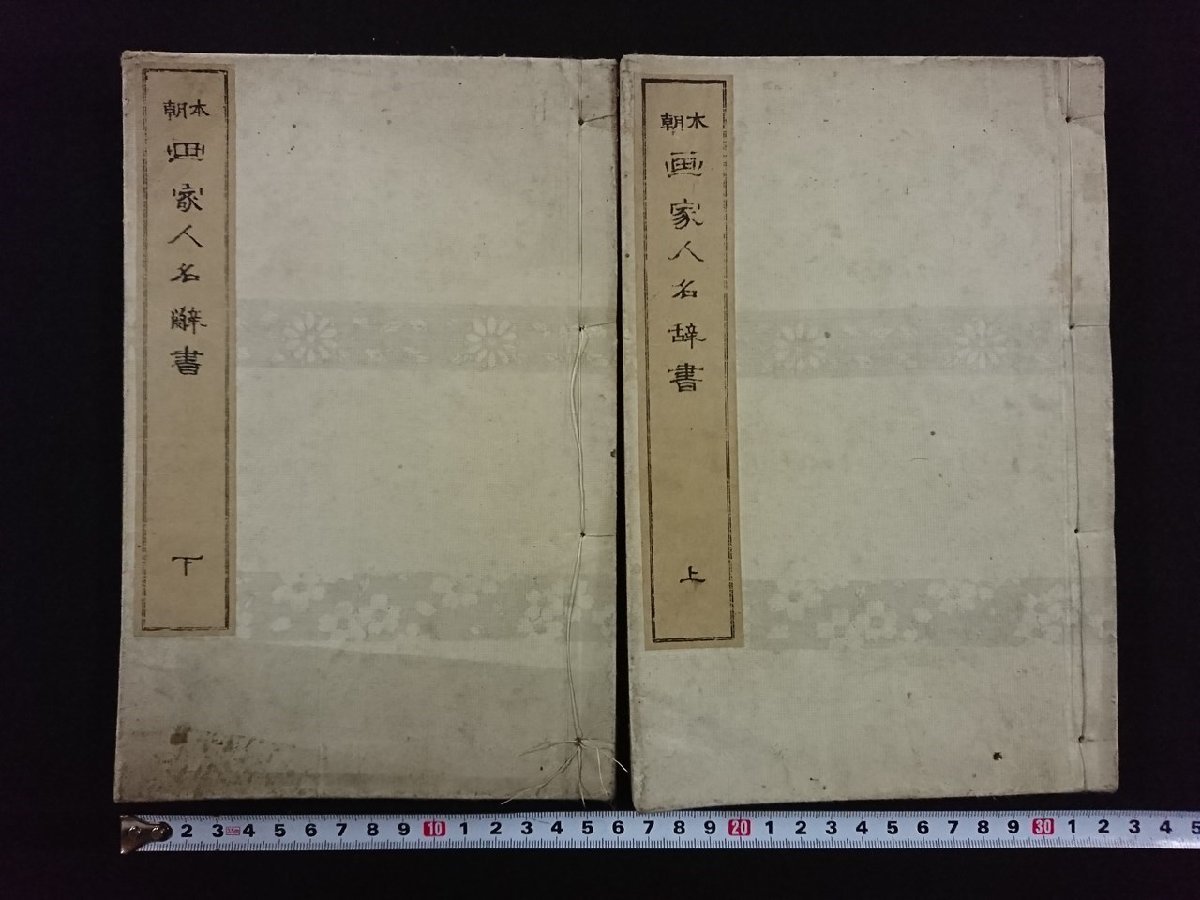 本朝
画家人名辞書
上
本朝
画家人名辭書
下
2 3 4 5 6 7 8 9 10 1 2 3 4 5 6 7 8 9 20 1 2 3 4 5 6 7 8 9 30 1 2 3 4 5